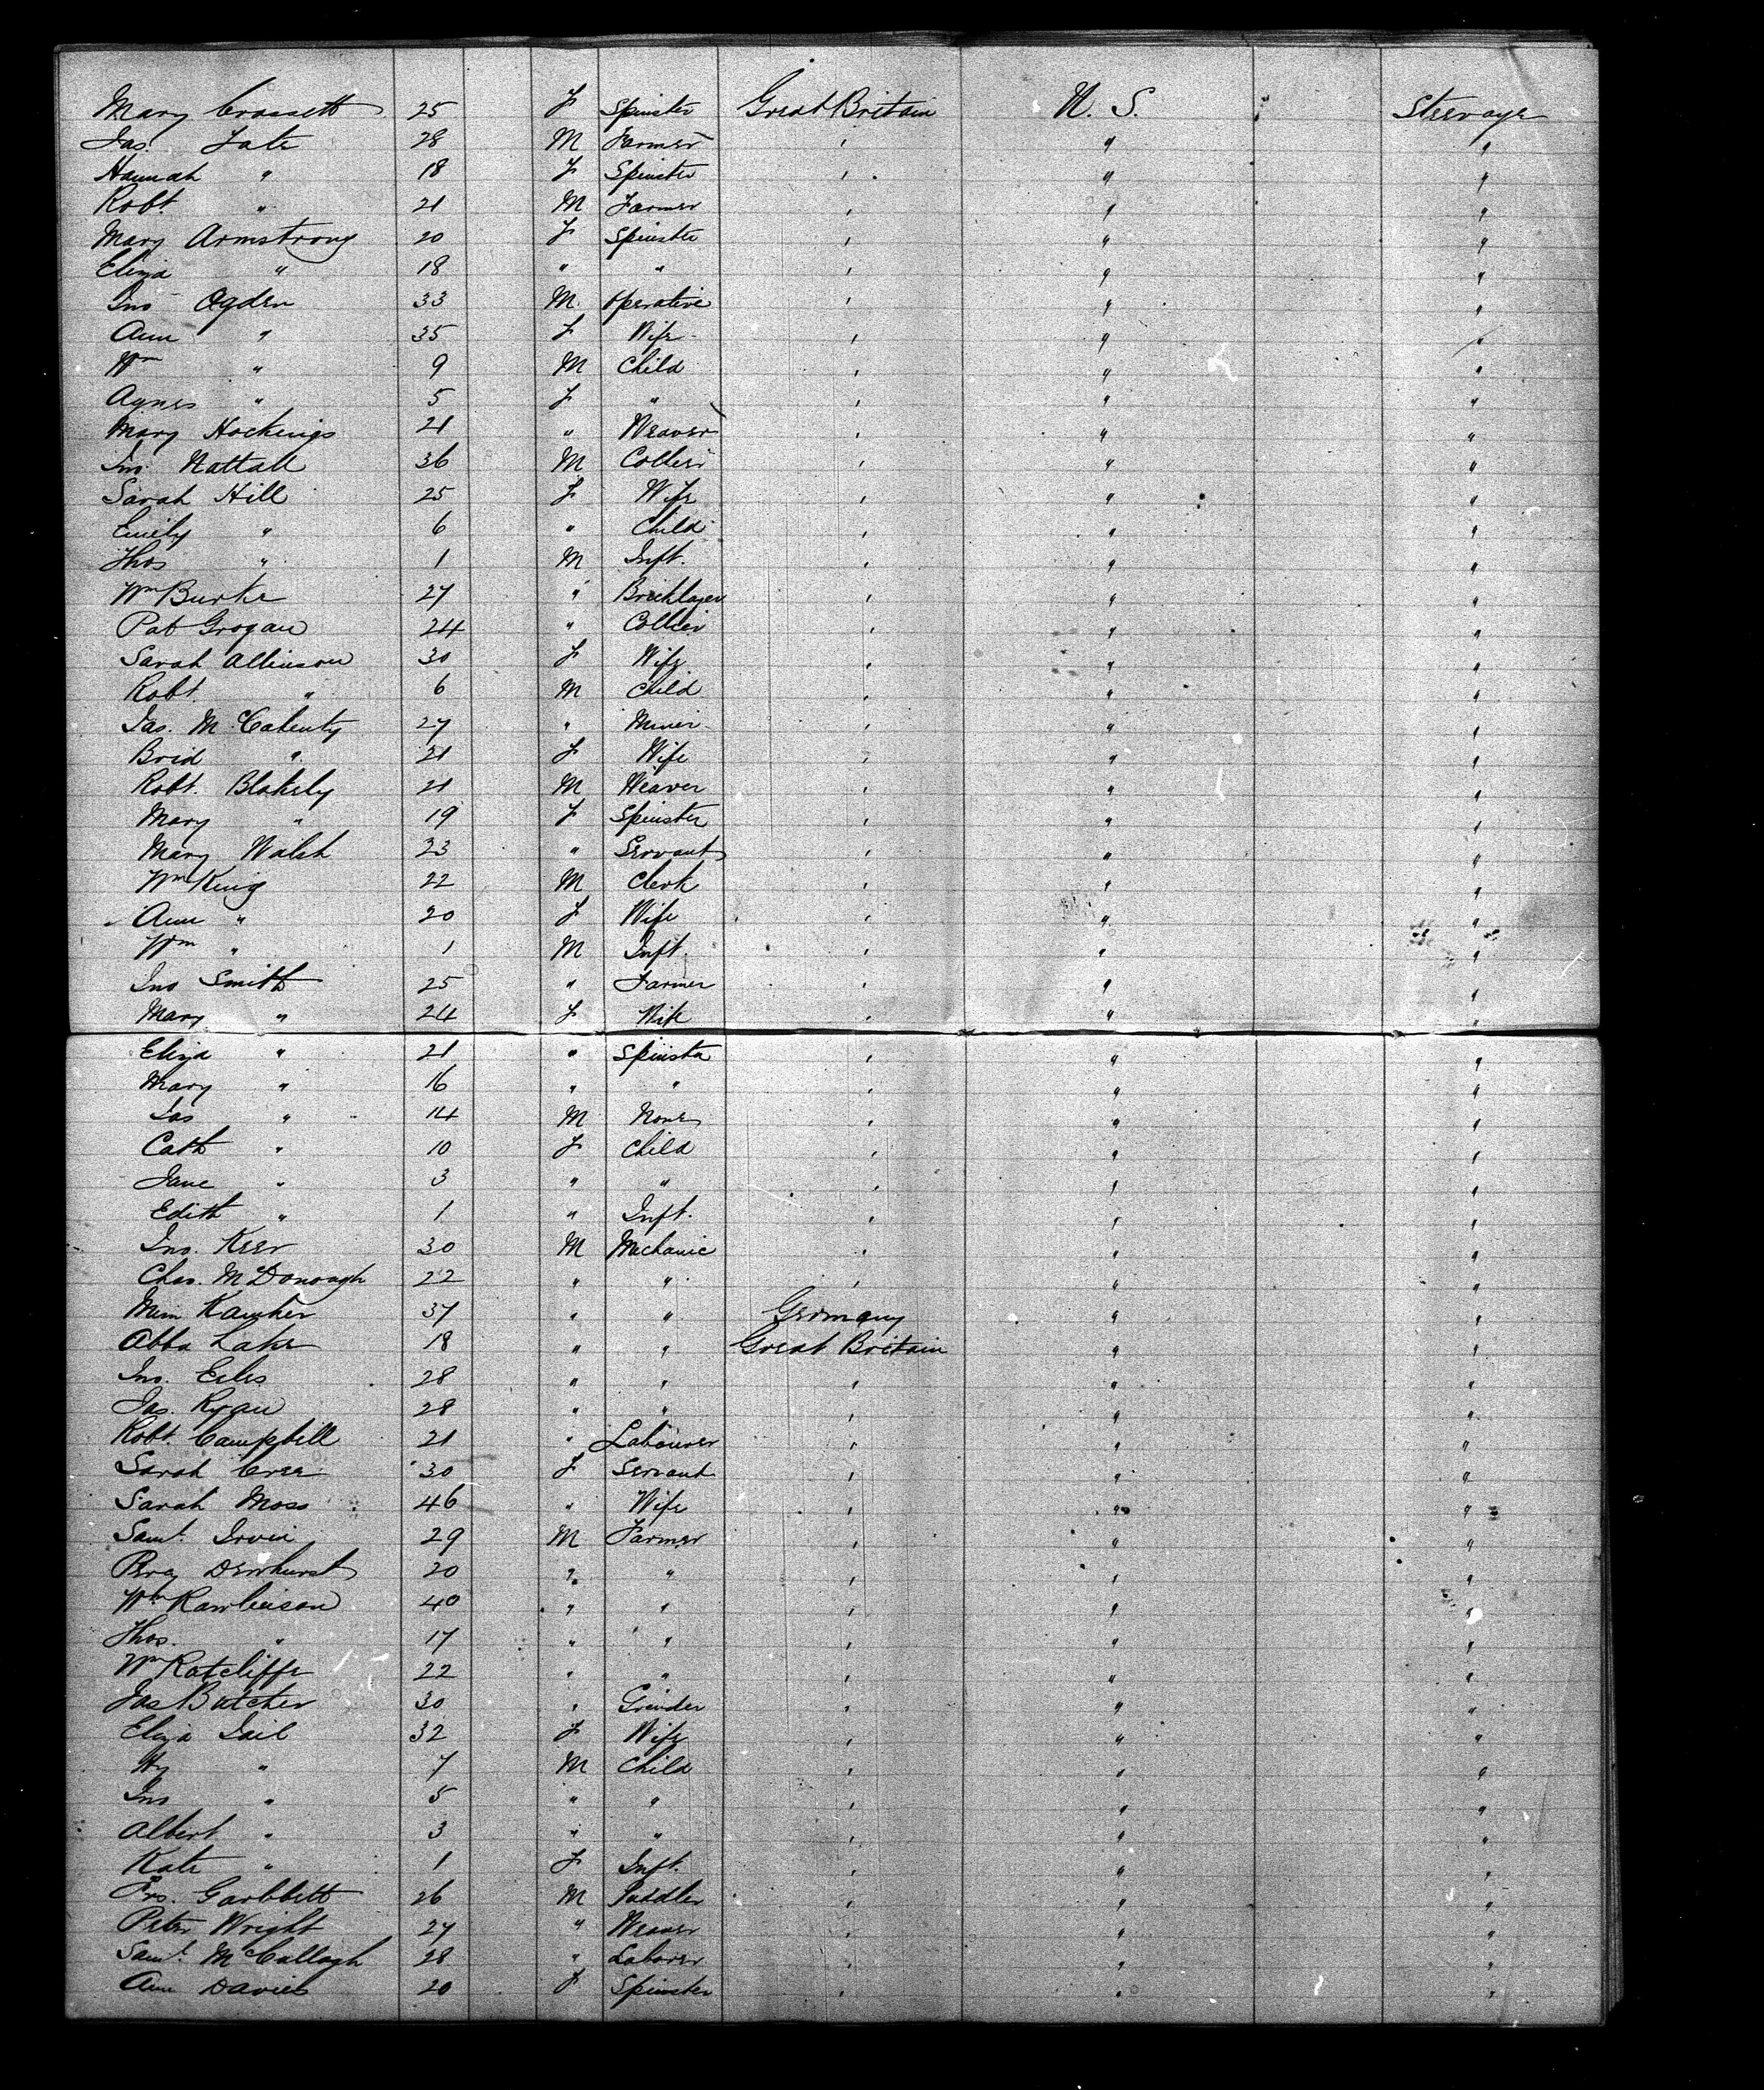 Mary Crossett 25 F Spinster Great Britain U. S. Steerage
Jas. Tate 28 M Farmer " " "
Hannah " 18 F Spinster " " "
Robt. " 21 M Farmer " " "
Mary Armstrong 20 F Spinster " " "
Eliza " 18 " " " " "
Jno Ogden 33 M Operative " " "
Ann " 35 F Wife " " "
Wm " 9 M Child " " "
Agnes " 5 F " " " "
Mary Hockings 21 " Weaver " " "
Jno. Nattall 36 M Collier " " "
Sarah Hill 25 F Wife " " "
Emily " 6 " Child " " "
Thos " 1 M Inft. " " "
Wm Burke 27 " Bricklayer " " "
Pat Grogan 24 " Collier " " "
Sarah Allinson 30 F Wife " " "
Robt. " 6 M Child " " "
Jas. McCahenty 27 " Miner " " "
Brid " 21 F Wife " " "
Robt. Blakely 21 M Weaver " " "
Mary " 19 F Spinster " " "
Mary Walsh 23 " Servant " " "
Wm King 22 M Clerk " " "
Ann " 20 F Wife " " "
Wm " 1 M Inft. " " "
Jno Smith 25 " Farmer " " "
Mary " 24 F Wife " " "
Eliza " 21 " Spinster " " "
Mary " 16 " " " " "
Jas " 14 M None " " "
Cath " 10 F Child " " "
Jane " 3 " " " " "
Edith " 1 " Inft. " " "
Jno. Keer 30 M Mechanic " " "
Chas. McDonough 22 " " " " "
Mim Kawher 37 " " Germany " "
Abba Lake 18 " " Great Britain " "
Jno. Eeles 28 " " " " "
Jas. Ryan 28 " " " " "
Robt. Campbell 21 " Labourer " " "
Sarah Cree 30 F Servant " " "
Sarah Moss 46 " Wife " " "
Saml. Irvin 29 M Farmer " " "
Benj Dewhurst 20 " " " " "
Wm Rawlinson 40 " " " " "
Thos. " 17 " " " " "
Wm Ratcliffe 22 " " " " "
Jas Butcher 30 " Grinder " " "
Eliza Dail 32 F Wife " " "
Hy " 7 M Child " " "
Jno " 5 " " " " "
Albert " 3 " " " " "
Kate " 1 F Inft. " " "
Garbbett 26 M " " "
Peter Wright 27 " Weaver " " "
Saml. McCullagh 28 " Laborer " " "
Ann Davies 20 F Spinster " " "